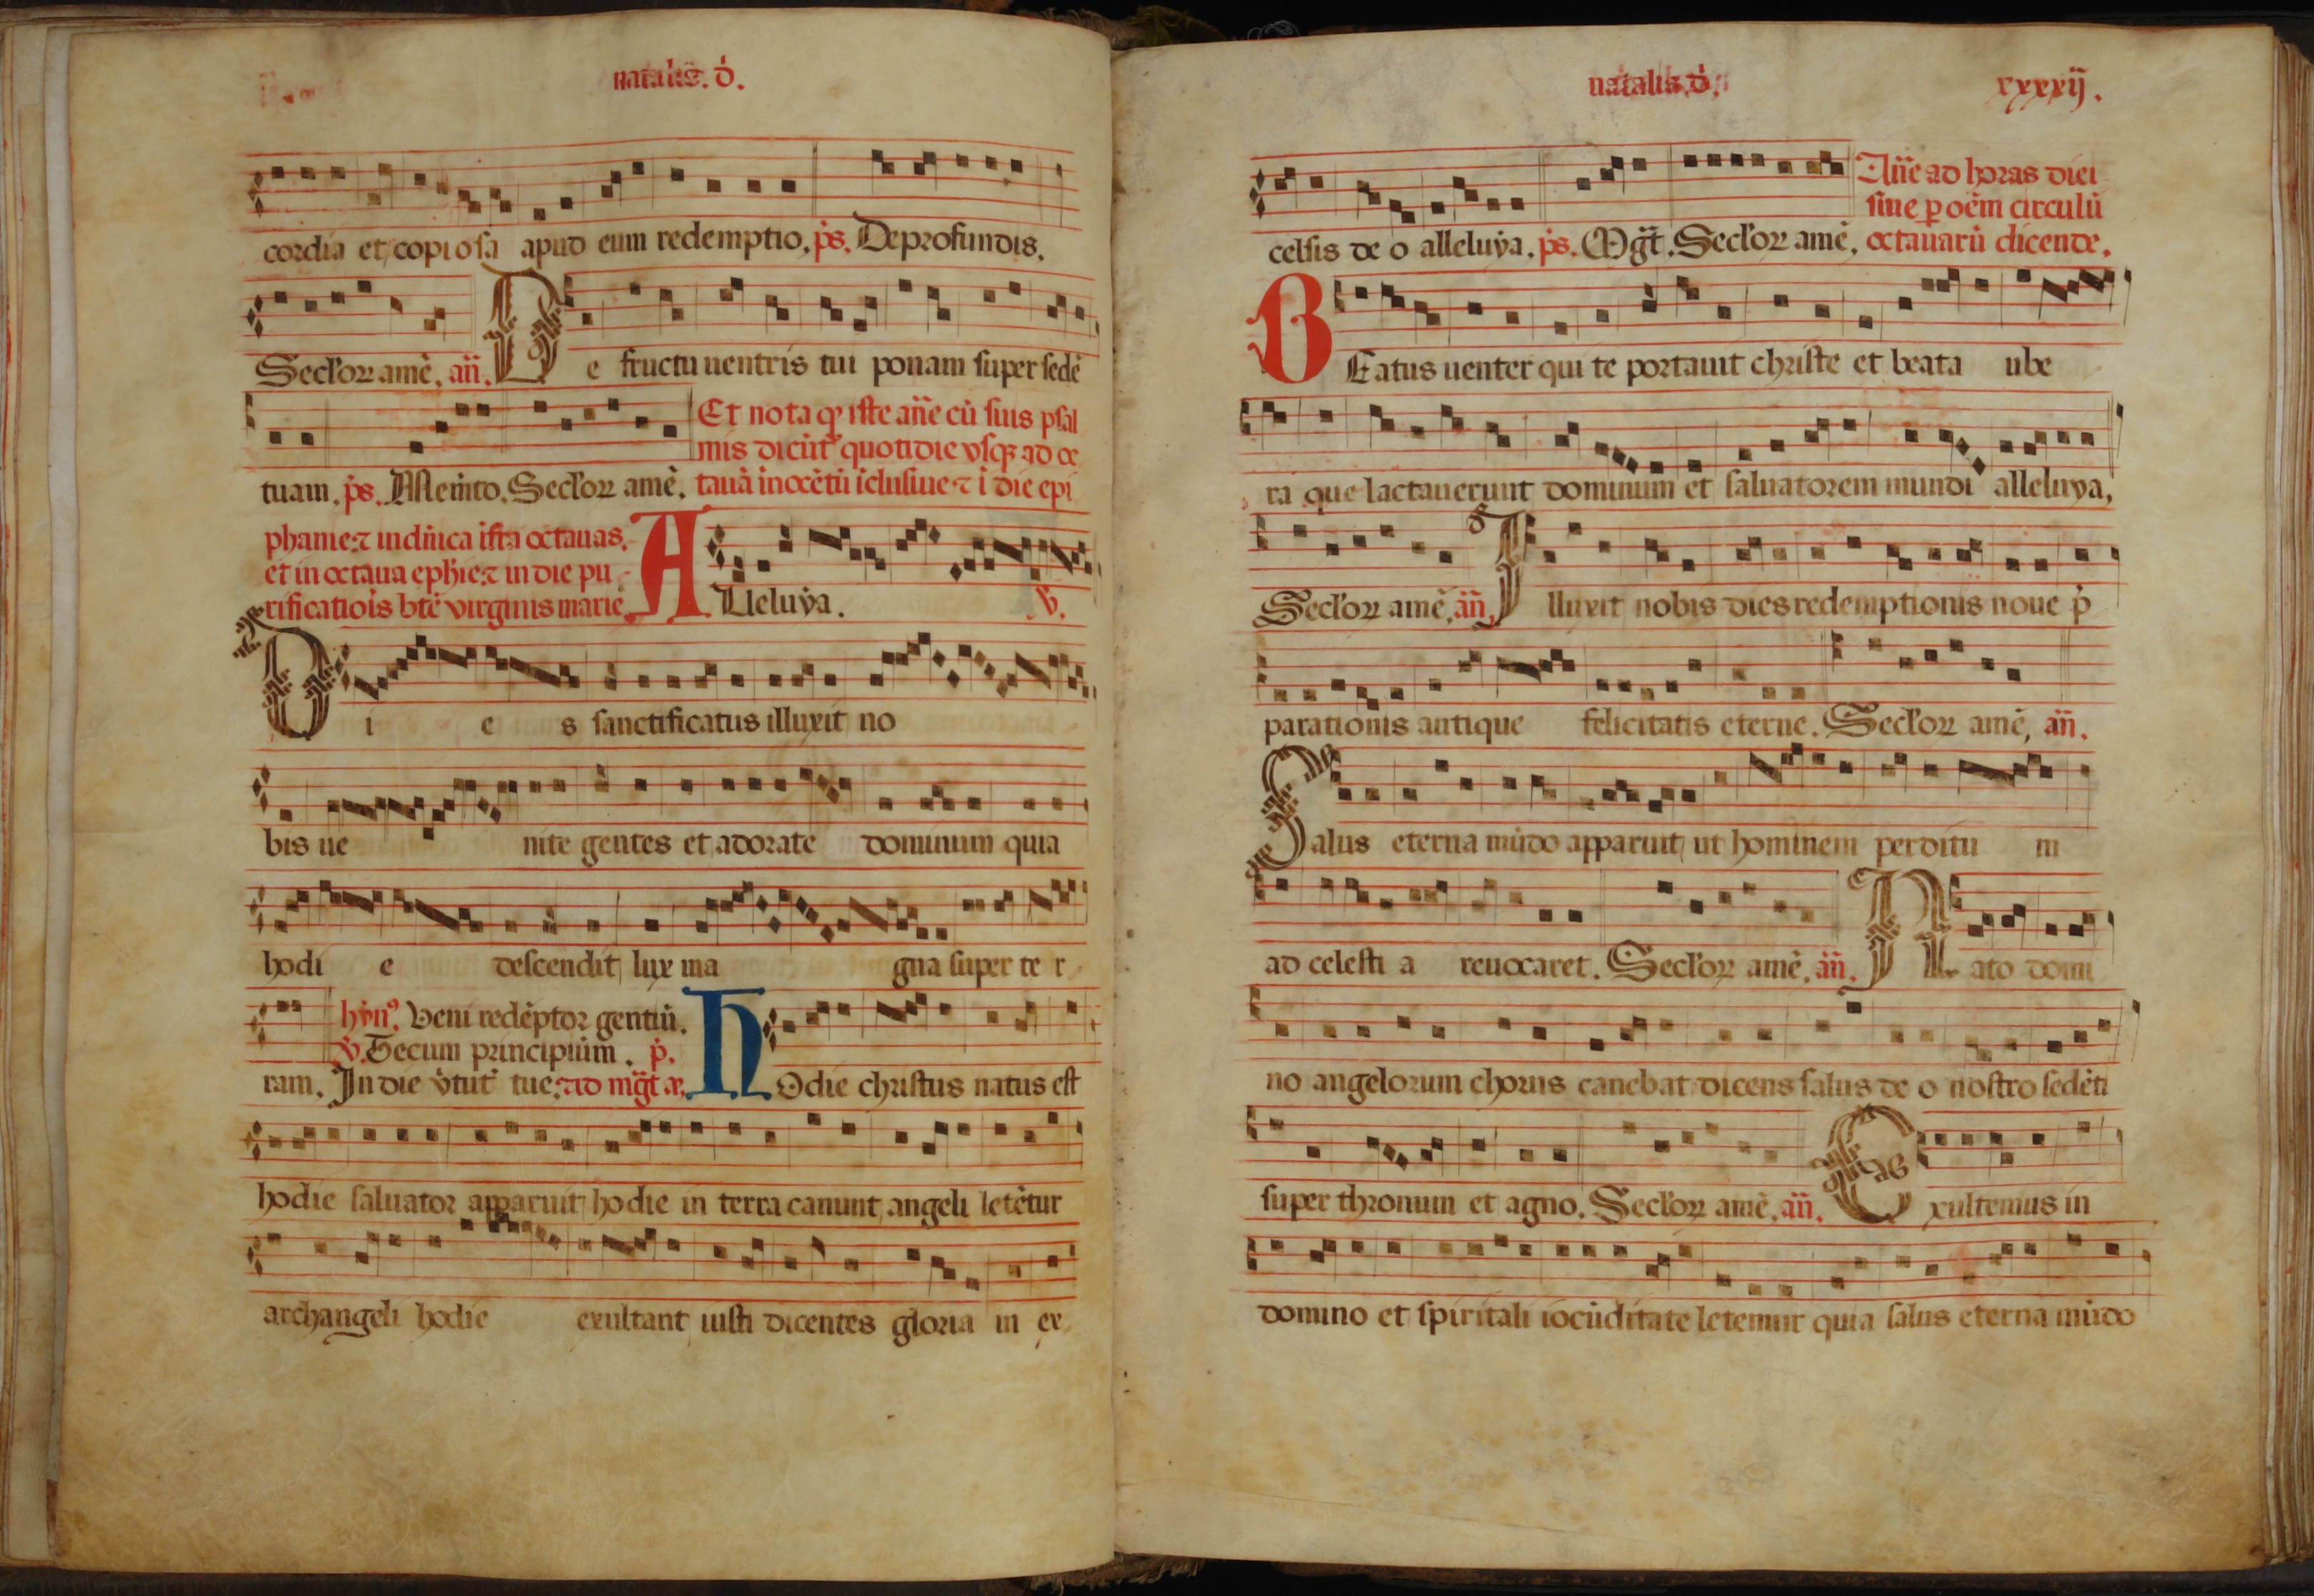 natalis. d̄.
cordia et copiosa apud eum redemptio. p̄s. De profundis.
Secl'oꝝ amē. añ. De fructu uentris tui ponam super sedē
Et nota ꝙ iste añe cū suis psal
mis dicūt' quotidie vsqꝫ ad oc
tuam. p̄s. Memēto. Secl'oꝝ amē. tauā inocētū īclusiue ⁊ ī die epi
phanie ⁊ in dn̄ica īfra octauas.
et in octaua ephie ⁊ in die pu
rificatiōis btē virginis marie.
ALleluya. V̄.
Dies sanctificatus illuxit no
bis uenite gentes et adorate dominum quia
hodie descendit lux magna super ter
hyn̄ꝰ. Veni redēptor gentiū.
V̄. Tecum principium. p̄.
ram. In die v̄tut' tue. ad mḡt a. HOdie christus natus est
hodie saluator apparuit hodie in terra canunt angeli letētur
archangeli hodie exultant iusti dicentes gloria in ex
natalis. d̄.
xxxxij.
Añe ad horas diei
siue ꝑ oēm circulū
celsis deo alleluya. p̄s. Mḡt. Secl'oꝝ amē. octauarū dicende.
BEatus uenter qui te portauit christe et beata ube
ra que lactauerunt dominum et saluatorem mundi alleluya,
Secl'oꝝ amē. añ. Illuxit nobis dies redemptionis noue p̄
parationis antique felicitatis eterne. Secl'oꝝ amē, añ.
Salus eterna mūdo apparuit ut hominem perditum
ad celestia reuocaret. Secl'oꝝ amē. añ. Nato domi
no angelorum chorus canebat dicens salus deo nostro sedēti
super thronum et agno. Secl'oꝝ amē. añ. Exultemus in
domino et spiritali iocūditate letemur quia salus eterna mūdo